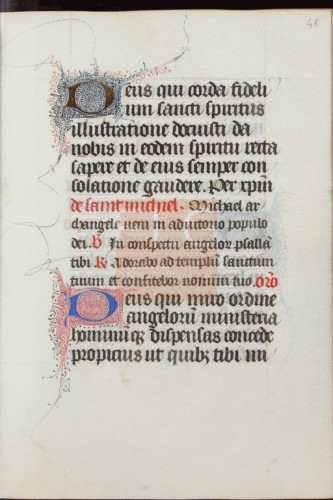 48
Deus qui corda fideli
ium sancti spiritus
illustratione docuisti da
nobis in eodem spiritu recta
sapere et de eius semper con
solatione gaudere. Per xpm̄
de saint michiel. Michael ar
changele ueni in adiutorio populo
dei. V̄ In conspectu angelor psallā
tibi R̄ Adorabo ad templū sanctum
tuum et confitebor nomini tuo. orō
Deus qui miro ordine
angelorū ministeria
hominūqꝫ dispensas concede
propicius ut quibꝫ tibi mi